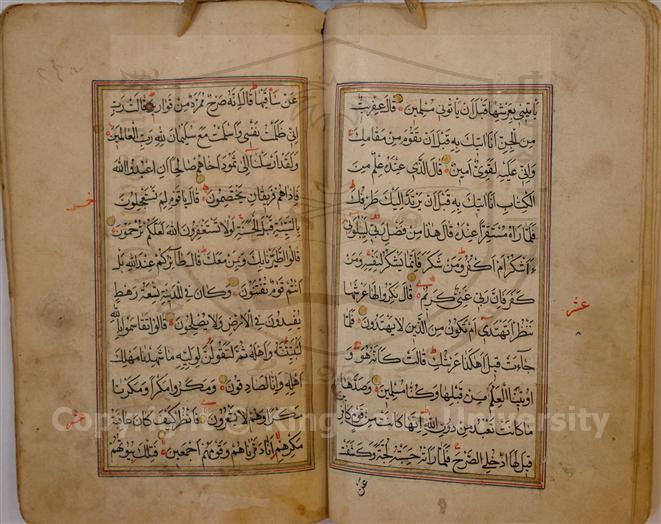 يأتيني بعرشها قبل ان يأتوني مسلمين قال عفريت
من الجن انا اتيك به قبل ان تقوم من مقامك
واني عليه لقوي امين قال الذي عنده علم من
الكتاب انا اتيك به قبل ان يرتد اليك طرفك
فلما راه مستقرا عنده قال هذا من فضل ربي ليبلوني
ءاشكر ام اكفر ومن شكر فانما يشكر لنفسه ومن
كفر فان ربي غني كريم قال نكروا لها عرشها
ننظر اتهتدي ام تكون من الذين لا يهتدون فلما
جاءت قيل اهكذا عرشك قالت كانه هو و
اوتينا العلم من قبلها وكنا مسلمين وصدها
ما كانت تعبد من دون الله انها كانت من قوم كافرين
قيل لها ادخلي الصرح فلما راته حسبته لجة وكشفت
عن
عشر
عن ساقيها قال انه صرح ممرد من قوارير قالت رب
اني ظلمت نفسي واسلمت مع سليمان لله رب العالمين
ولقد ارسلنا الى ثمود اخاهم صالحا ان اعبدوا الله
فاذا هم فريقان يختصمون قال يا قوم لم تستعجلون
بالسيئة قبل الحسنة لولا تستغفرون الله لعلكم ترحمون
قالوا اطيرنا بك وبمن معك قال طائركم عند الله بل
انتم قوم تفتنون وكان في المدينة تسعة رهط
يفسدون في الارض ولا يصلحون قالوا تقاسموا بالله
لنبيتنه واهله ثم لنقولن لوليه ما شهدنا مهلك
اهله وانا لصادقون ومكروا مكرا ومكرنا
مكرا وهم لا يشعرون فانظر كيف كان عاقبة
مكرهم انا دمرناهم وقومهم اجمعين فتلك بيوتهم
Copyright © King Saud University